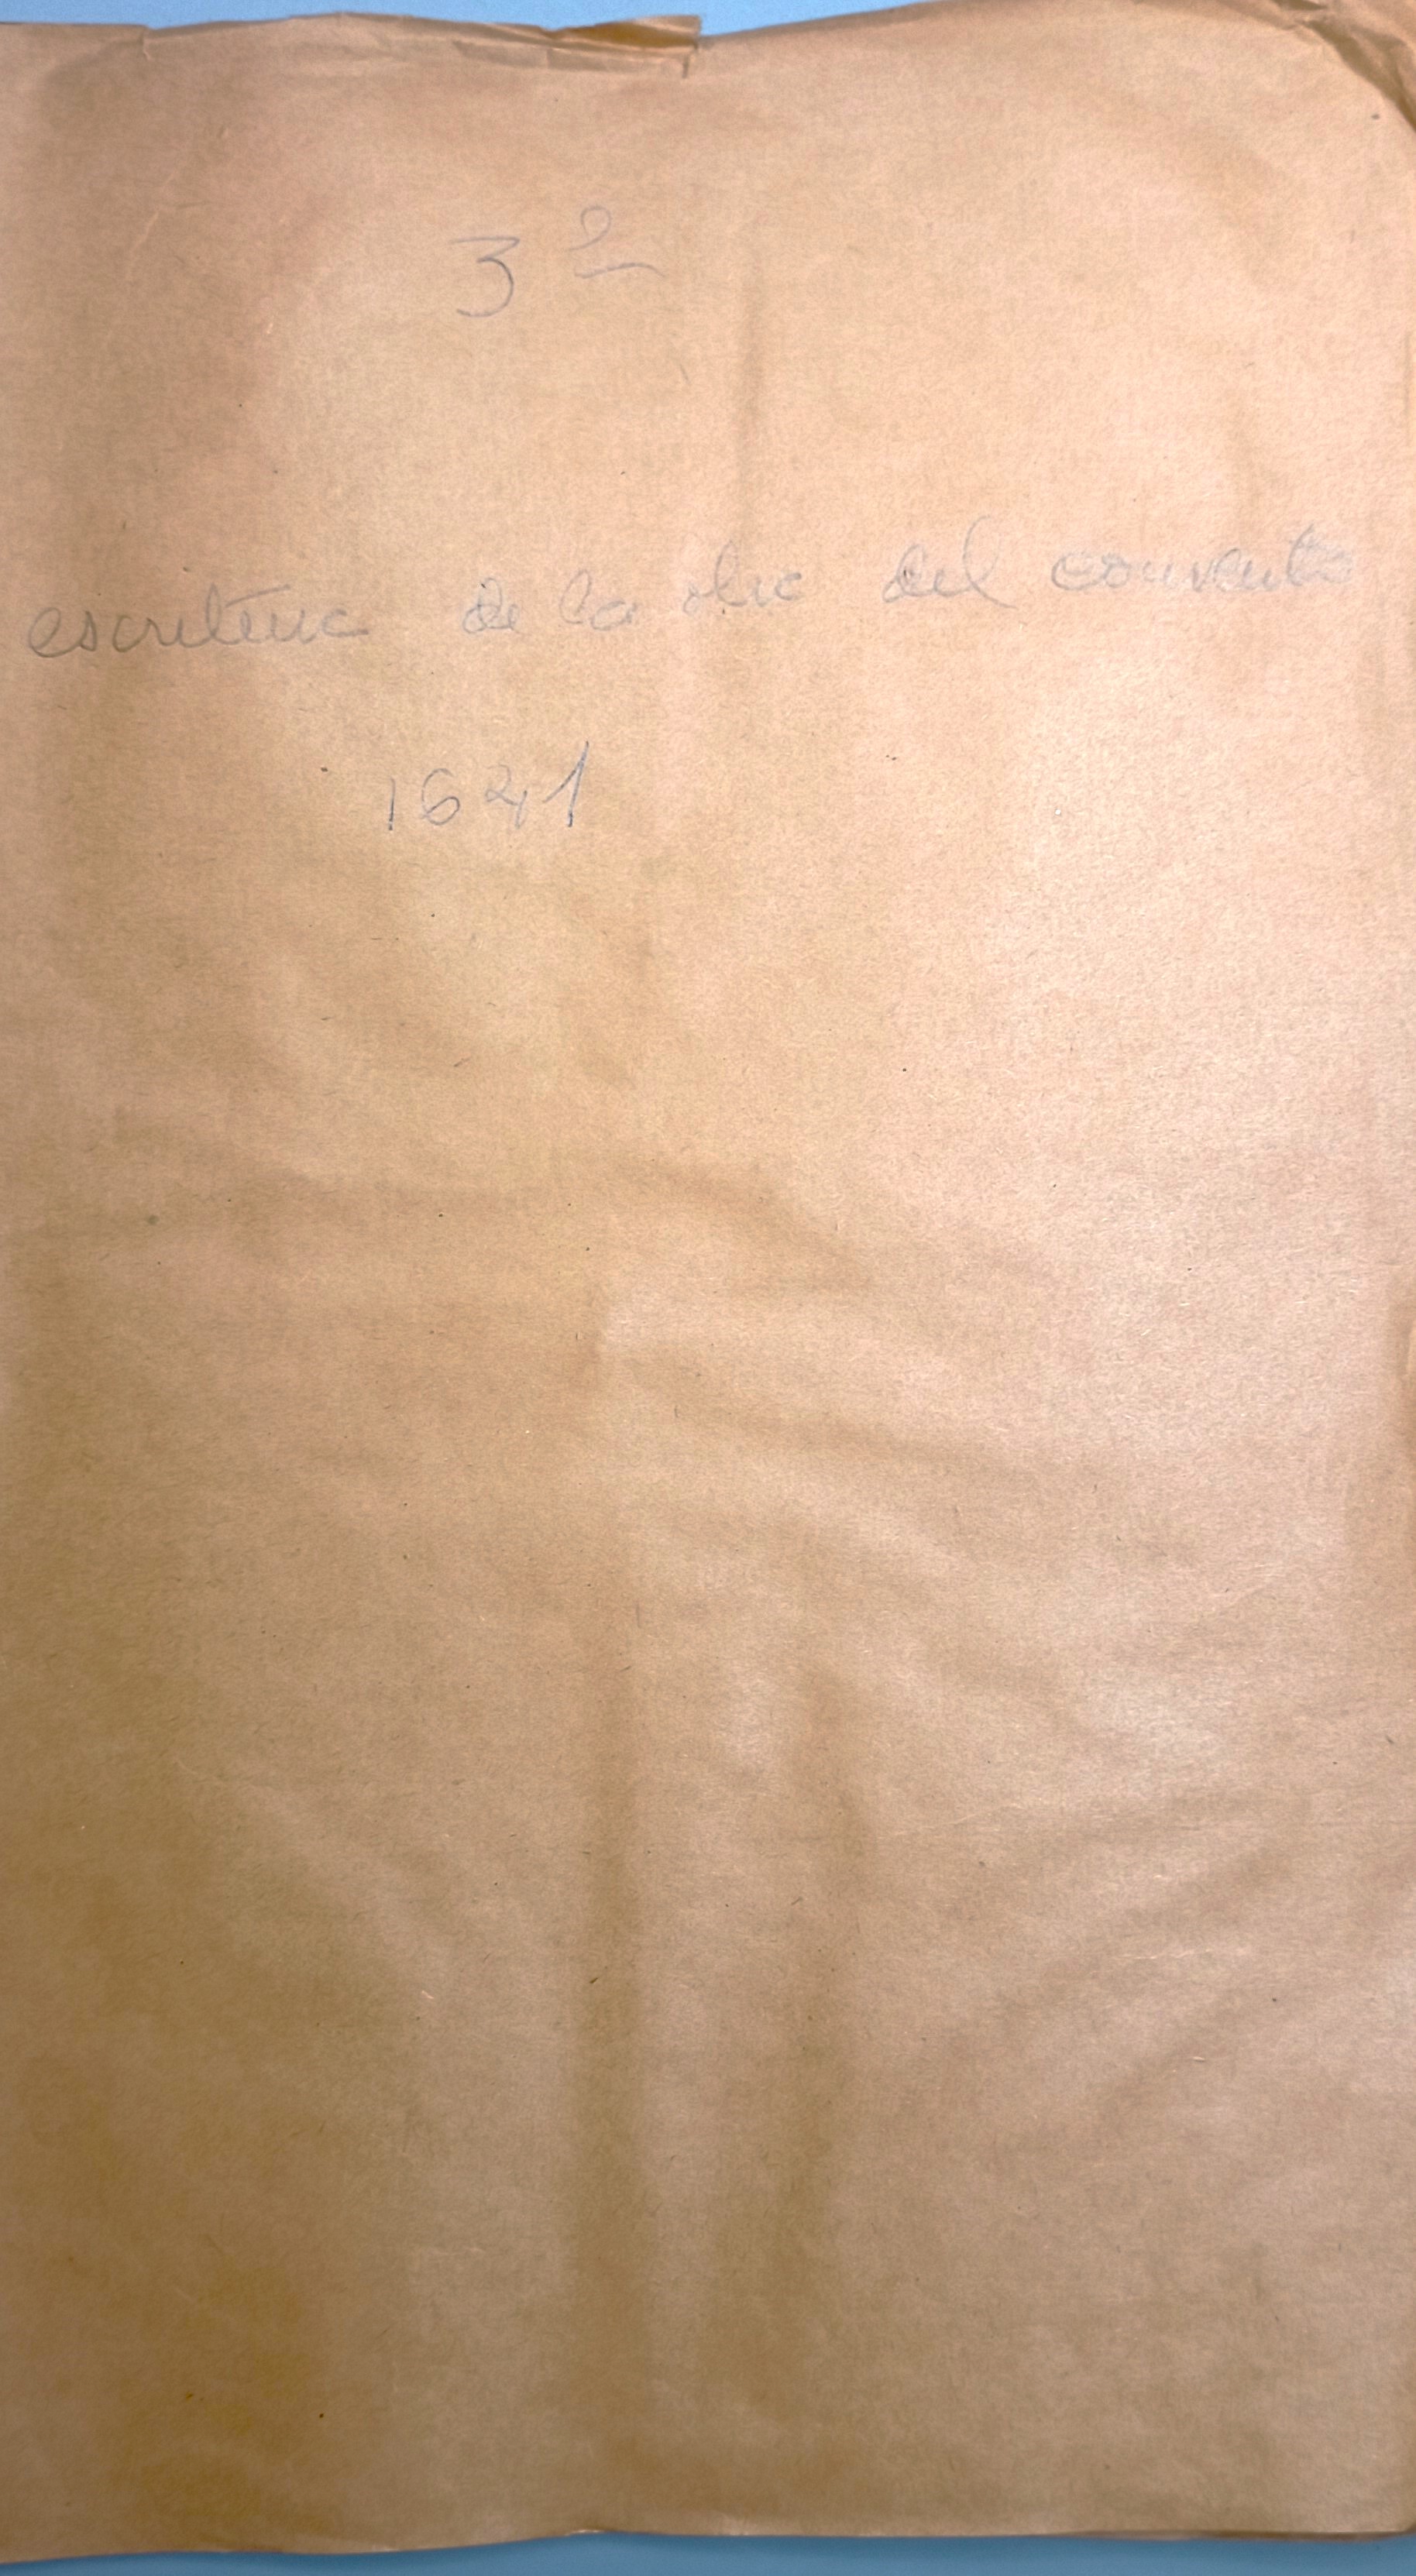 3º
escritura de la obra del convento
1621